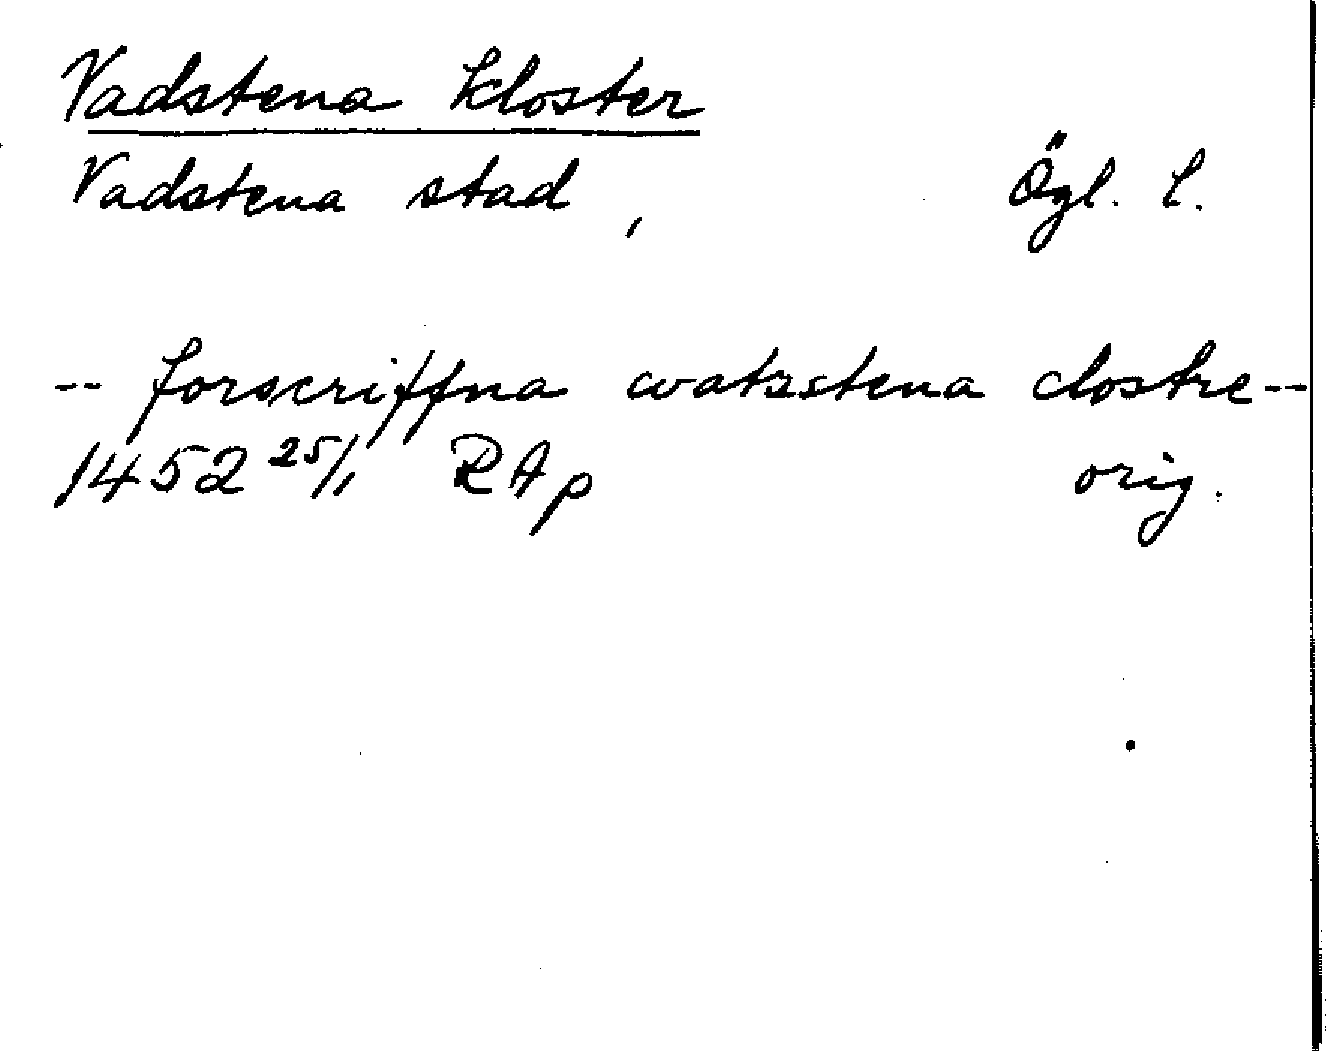 Vadstena kloster
Vadstena stad, Ögl. l.
-- forscriffna watzstena clostre --
1452 25/1 RAp orig.